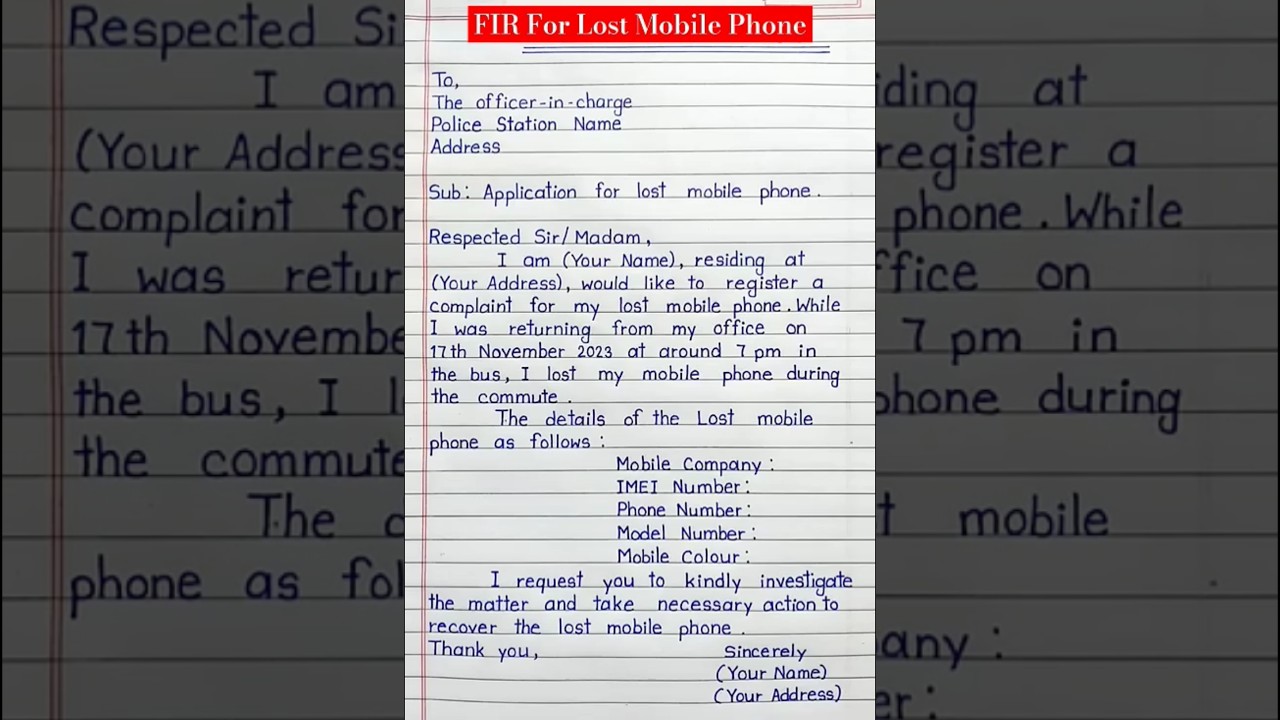 FIR For Lost Mobile Phone
To,
The officer-in-charge
Police Station Name
Address
Sub: Application for lost mobile phone.
Respected Sir/Madam,
I am (Your Name), residing at
(Your Address), would like to register a
complaint for my lost mobile phone. While
I was returning from my office on
17th November 2023 at around 7 pm in
the bus, I lost my mobile phone during
the commute.
The details of the Lost mobile
phone as follows:
Mobile Company:
IMEI Number:
Phone Number:
Model Number:
Mobile Colour:
I request you to kindly investigate
the matter and take necessary action to
recover the lost mobile phone.
Thank you,
Sincerely
(Your Name)
(Your Address)